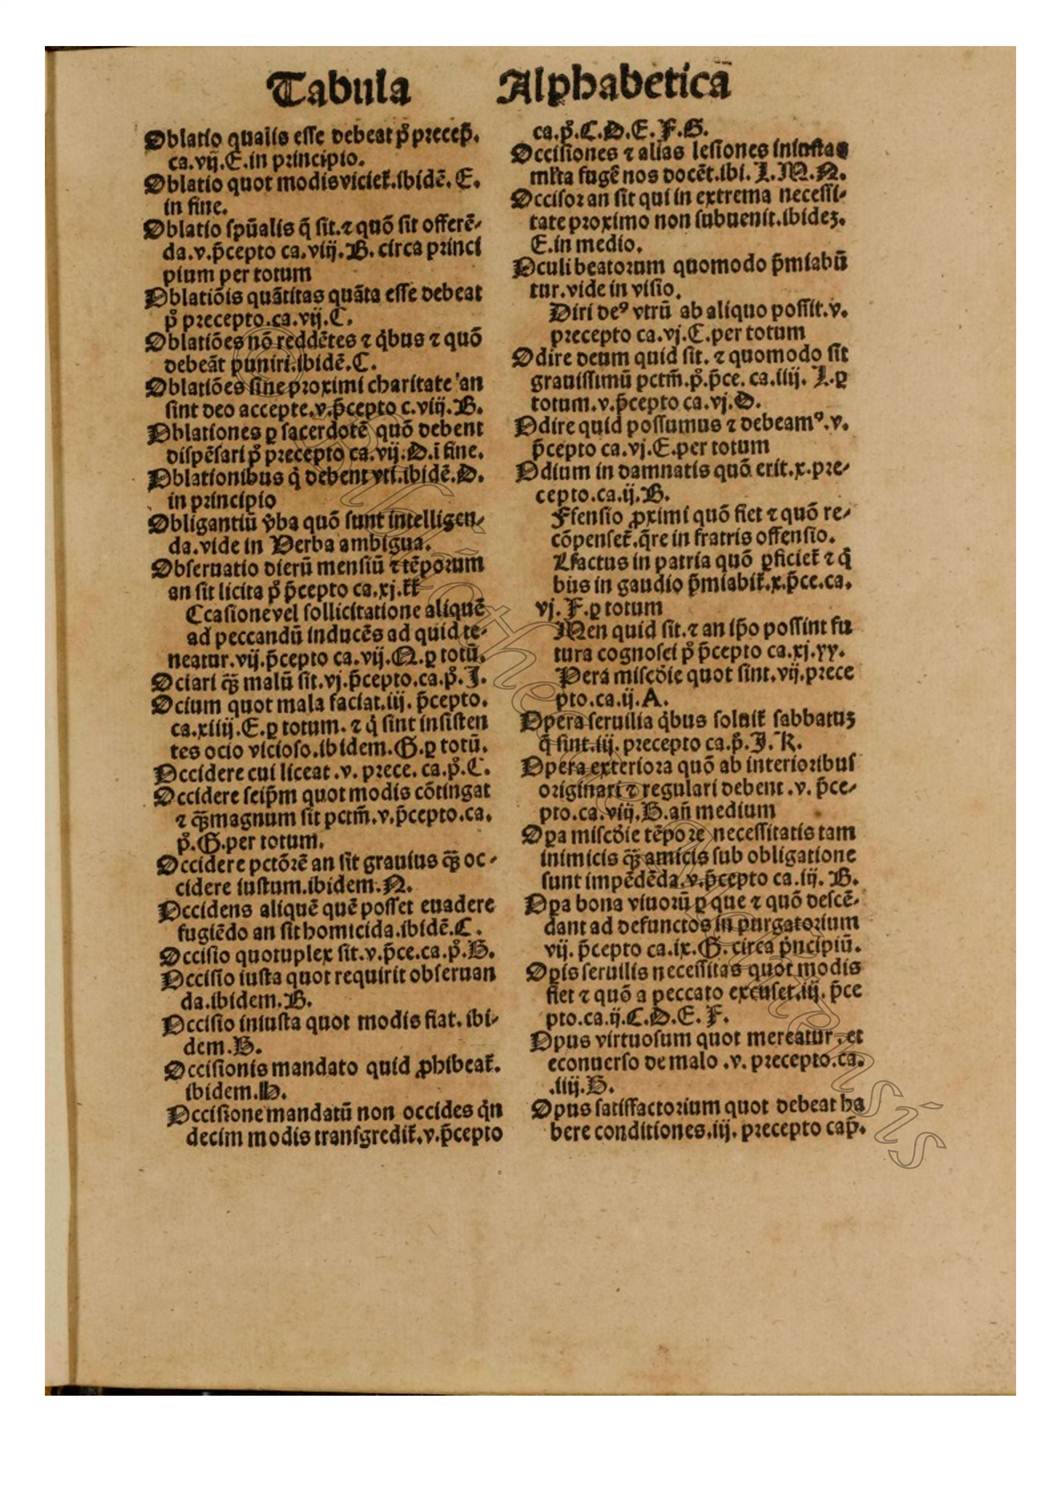 Tabula Alphabetica
Oblatio qualis esse debeat p̊ precep̄.
ca.vij.E.in principio.
Oblatio quot modis viciet̄.ibidē. E.
in fine.
Oblatio spūalis q̄ sit.⁊ quō sit offerē⸗
da.v.p̄cepto ca.viij.B. circa princi
pium per totum
Oblatiōis quātitas quāta esse debeat
p̊ precepto.ca.vij.C.
Oblatiōes nō reddētes ⁊ q̇bus ⁊ quō
debeāt puniri.ibidē.C.
Oblatiōes sine proximi charitate an
sint deo accepte.v.p̄cepto c.viij.B.
Oblationes ꝑ sacerdotē quō debent
dispēsari p̊ precepto ca.vij.D.ī fine.
Oblationibus q̇ debent vti.ibidē.D.
in principio
Obligantiū v̄ba quō sunt intelligen⸗
da.vide in Verba ambigua.
Obseruatio dierū mensiū ⁊ tēporum
an sit licita p̊ p̄cepto ca.xj.kk
Ccasione vel sollicitatione aliquē
ad peccandū inducēs ad quid te⸗
neatur.vij.p̄cepto ca.vij.N.ꝑ totū.
Ociari q̄ꝫ malū sit.vj.p̄cepto.ca.p̊.I.
Ocium quot mala faciat.iij. p̄cepto.
ca.xiiij.E.ꝑ totum. ⁊ q̇ sint insisten
tes ocio vicioso.ibidem.G.ꝑ totū.
Occidere cui liceat .v. prece. ca.p̊.C.
Occidere seip̄m quot modis cōtingat
⁊ q̄ꝫ magnum sit pctm̄.v.p̄cepto.ca.
p̊.G.per totum.
Occidere pctōrē an sit grauius q̄ꝫ oc⸗
cidere iustum.ibidem.N.
Occidens aliquē quē posset euadere
fugiēdo an sit homicida.ibidē.C.
Occisio quotuplex sit.v.p̄ce.ca.p̊.B.
Occisio iusta quot requirit obseruan
da.ibidem.B.
Occisio iniusta quot modis fiat. ibi⸗
dem.B.
Occisionis mandato quid ꝓhibeat̄.
ibidem.H.
Occisione mandatū non occides q̇n
decim modis transgredit̄.v.p̄cepto
ca.p̊.C.D.E.F.G.
Occisiones ⁊ alias lesiones iniustas
ml̄ta fugē nos docēt.ibi. I.M.N.
Occisor an sit qui in extrema necessi⸗
tate proximo non subuenit.ibideꝫ.
E.in medio.
Oculi beatorum quomodo p̄miabū
tur.vide in visio.
Diri deꝰ vtrū ab aliquo possit.v.
precepto ca.vj.C.per totum
Odire deum quid sit. ⁊ quomodo sit
grauissimū pctm̄.p̊.p̄ce. ca.iiij. I.ꝑ
totum.v.p̄cepto ca.vj.D.
Odire quid possumus ⁊ debeamꝰ.v.
p̄cepto ca.vj.E.per totum
Odium in damnatis quō erit.x.pre⸗
cepto.ca.ij.B.
Ffensio ꝓximi quō fiet ⁊ quō re⸗
cōpenset̄.q̄re in fratris offensio.
Lfactus in patria quō ꝑficiet̄ ⁊ q̇
bus in gaudio p̄miabit̄.x.p̄ce.ca.
vj. F.ꝑ totum
Men quid sit.⁊ an ip̄o possint fu
tura cognosci p̊ p̄cepto ca.xj.yy.
Pera misc̄die quot sint.vij.prece
pto.ca.ij.A.
Opera seruilia q̇bus soluit̄ sabbatuꝫ
q̄ sint.iij. precepto ca.p̄.I.K.
Opera exteriora quō ab interioribus
originari ⁊ regulari debent .v. p̄ce⸗
pto.ca.viij.B.an̄ medium
Oꝑa misc̄die tēpore necessitatis tam
inimicis q̄ꝫ amicis sub obligatione
sunt impēdēda.v.p̄cepto ca.iij. B.
Oꝑa bona viuorū ꝑ que ⁊ quō descē⸗
dant ad defunctos in purgatorium
vij. p̄cepto ca.ix.G. circa p̄ncipiū.
Oꝑis seruilis necessitas quot modis
fiet ⁊ quō a peccato excuset.iij. p̄ce
pto.ca.ij.C.D.E. F.
Opus virtuosum quot mereatur. et
econuerso de malo .v. precepto.ca.
.iiij.B.
Opus satisfactorium quot debeat ha
bere conditiones.iij. precepto cap̄.